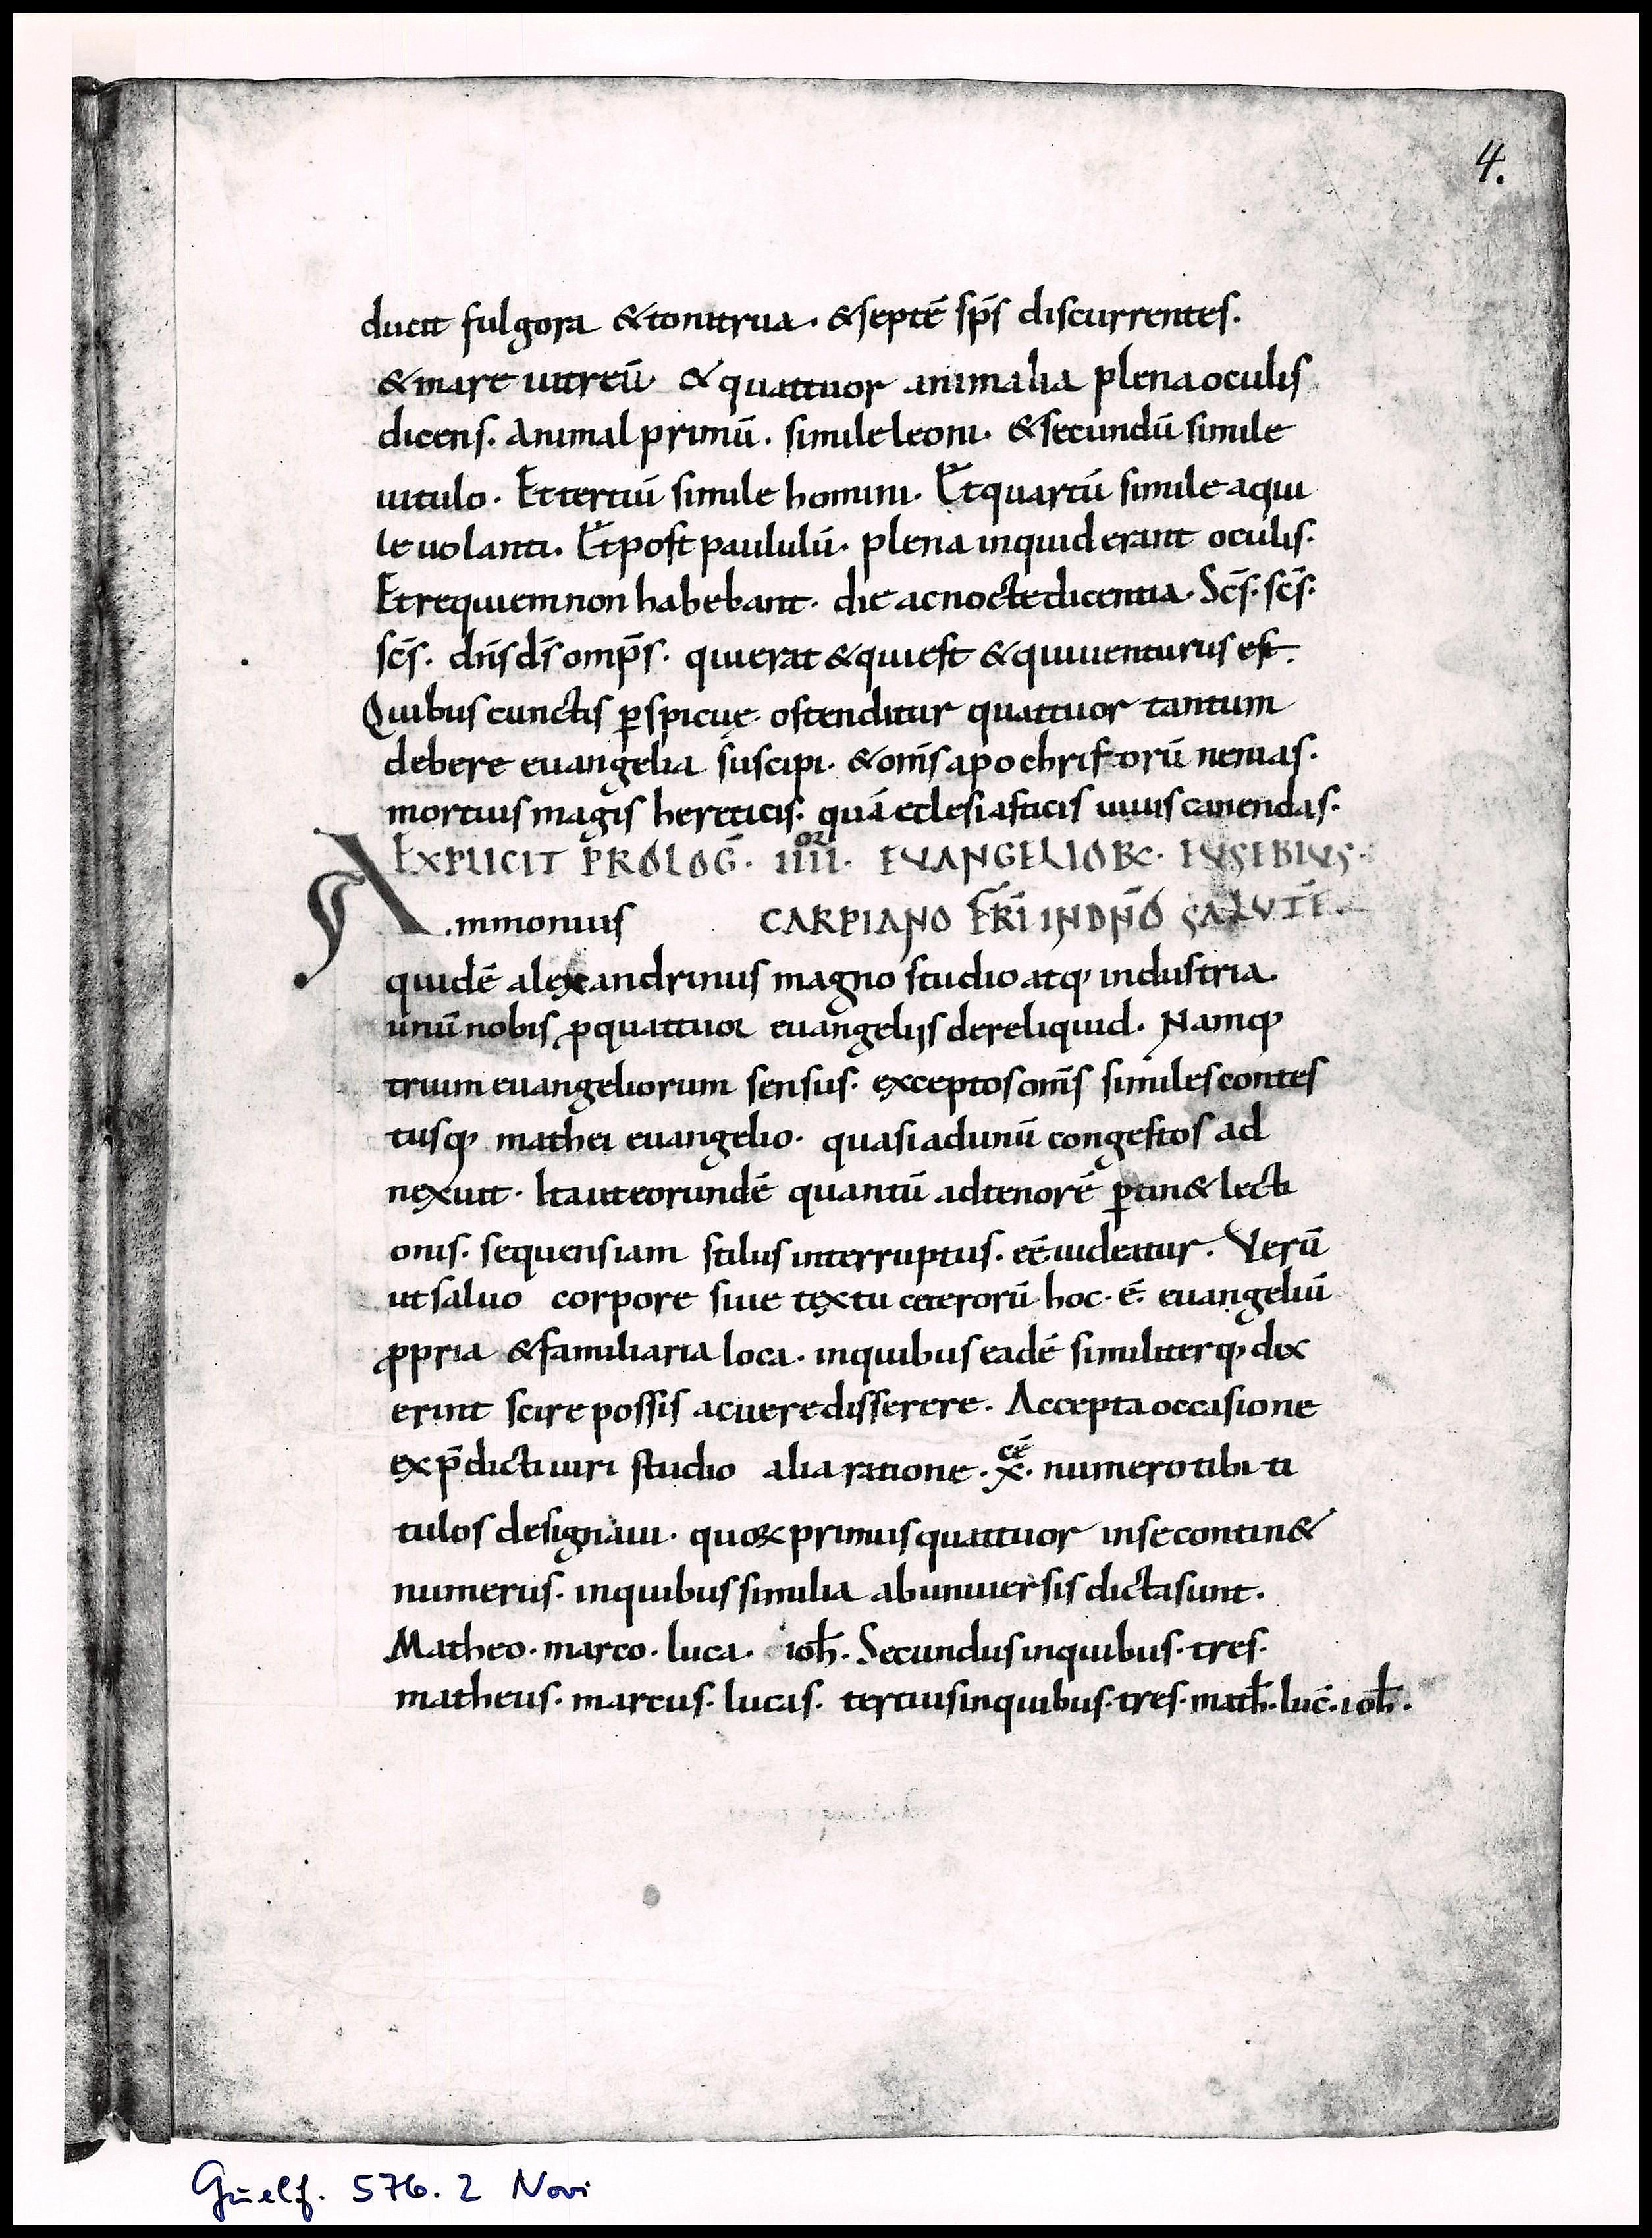 4.
ducit fulgora & tonitrua · & septē sp̄s discurrentes.
& mare uitreū & quattuor animalia plena oculis
dicens. Animal primū. simile leoni. & secundū simile
uitulo. Et tertiū simile homini. Et quartū simile aqui
le uolanti. Et post paululū. plena inquid erant oculis.
Et requiem non habebant. die ac nocte dicentia. Sc̄s. sc̄s.
sc̄s. dn̄s ds̄ omp̄s. qui erat & qui est & qui uenturus est.
Quibus cunctis ꝑspicue. ostenditur quattuor tantum
debere euangelia suscipi. & om̄s apochriftorū nenias.
mortuis magis hereticis. quā ecclesiasticis uiuis canendas.
EXPLICIT PROLOḠ. IIIIor. EUANGELIOꝜ. EUSEBIUS.
Ammonius CARPIANO FRĪ IN DN̄O SALUTĒ.
quidē alexandrinus magno studio atq; industria.
unū nobis ꝓ quattuor euangeliis dereliquid. Namq;
trium euangeliorum sensus. exceptos om̄s similes contes
tusq; mathei euangelio. quasi ad unū congestos ad
nexuit. Ita ut eorundē quantū ad tenorē ꝑtin& lecti
onis. sequens iam stilus interruptus. eē uideatur. Verū
ut saluo corpore siue textu ceterorū hoc. ē. euangeliū
ꝓpria & familiaria loca. in quibus eadē similiterq; dix
erint scire possis ac uere disserere. Accepta occasione
ex p̄dicti uiri studio alia ratione. x̄cē. numero tibi ti
tulos designaui. quoꝝ primus quattuor in se contin&
numerus. in quibus similia ab uniuersis dicta sunt.
Matheo. marco. luca. ioh̄. Secundus in quibus. tres.
matheus. marcus. lucas. tertius in quibus. tres. math̄. luc̄. ioh̄.
Guelf. 576. 2 Novi